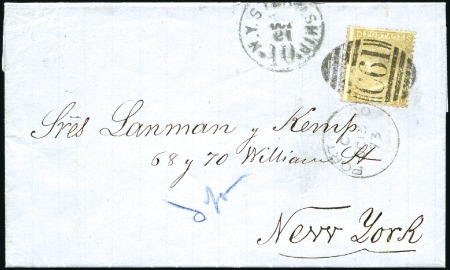 N.Y. STEAMSHIP
10
POSTAGE
C61
Srēs Lanman y Kemp
68 y 70 William St
New York